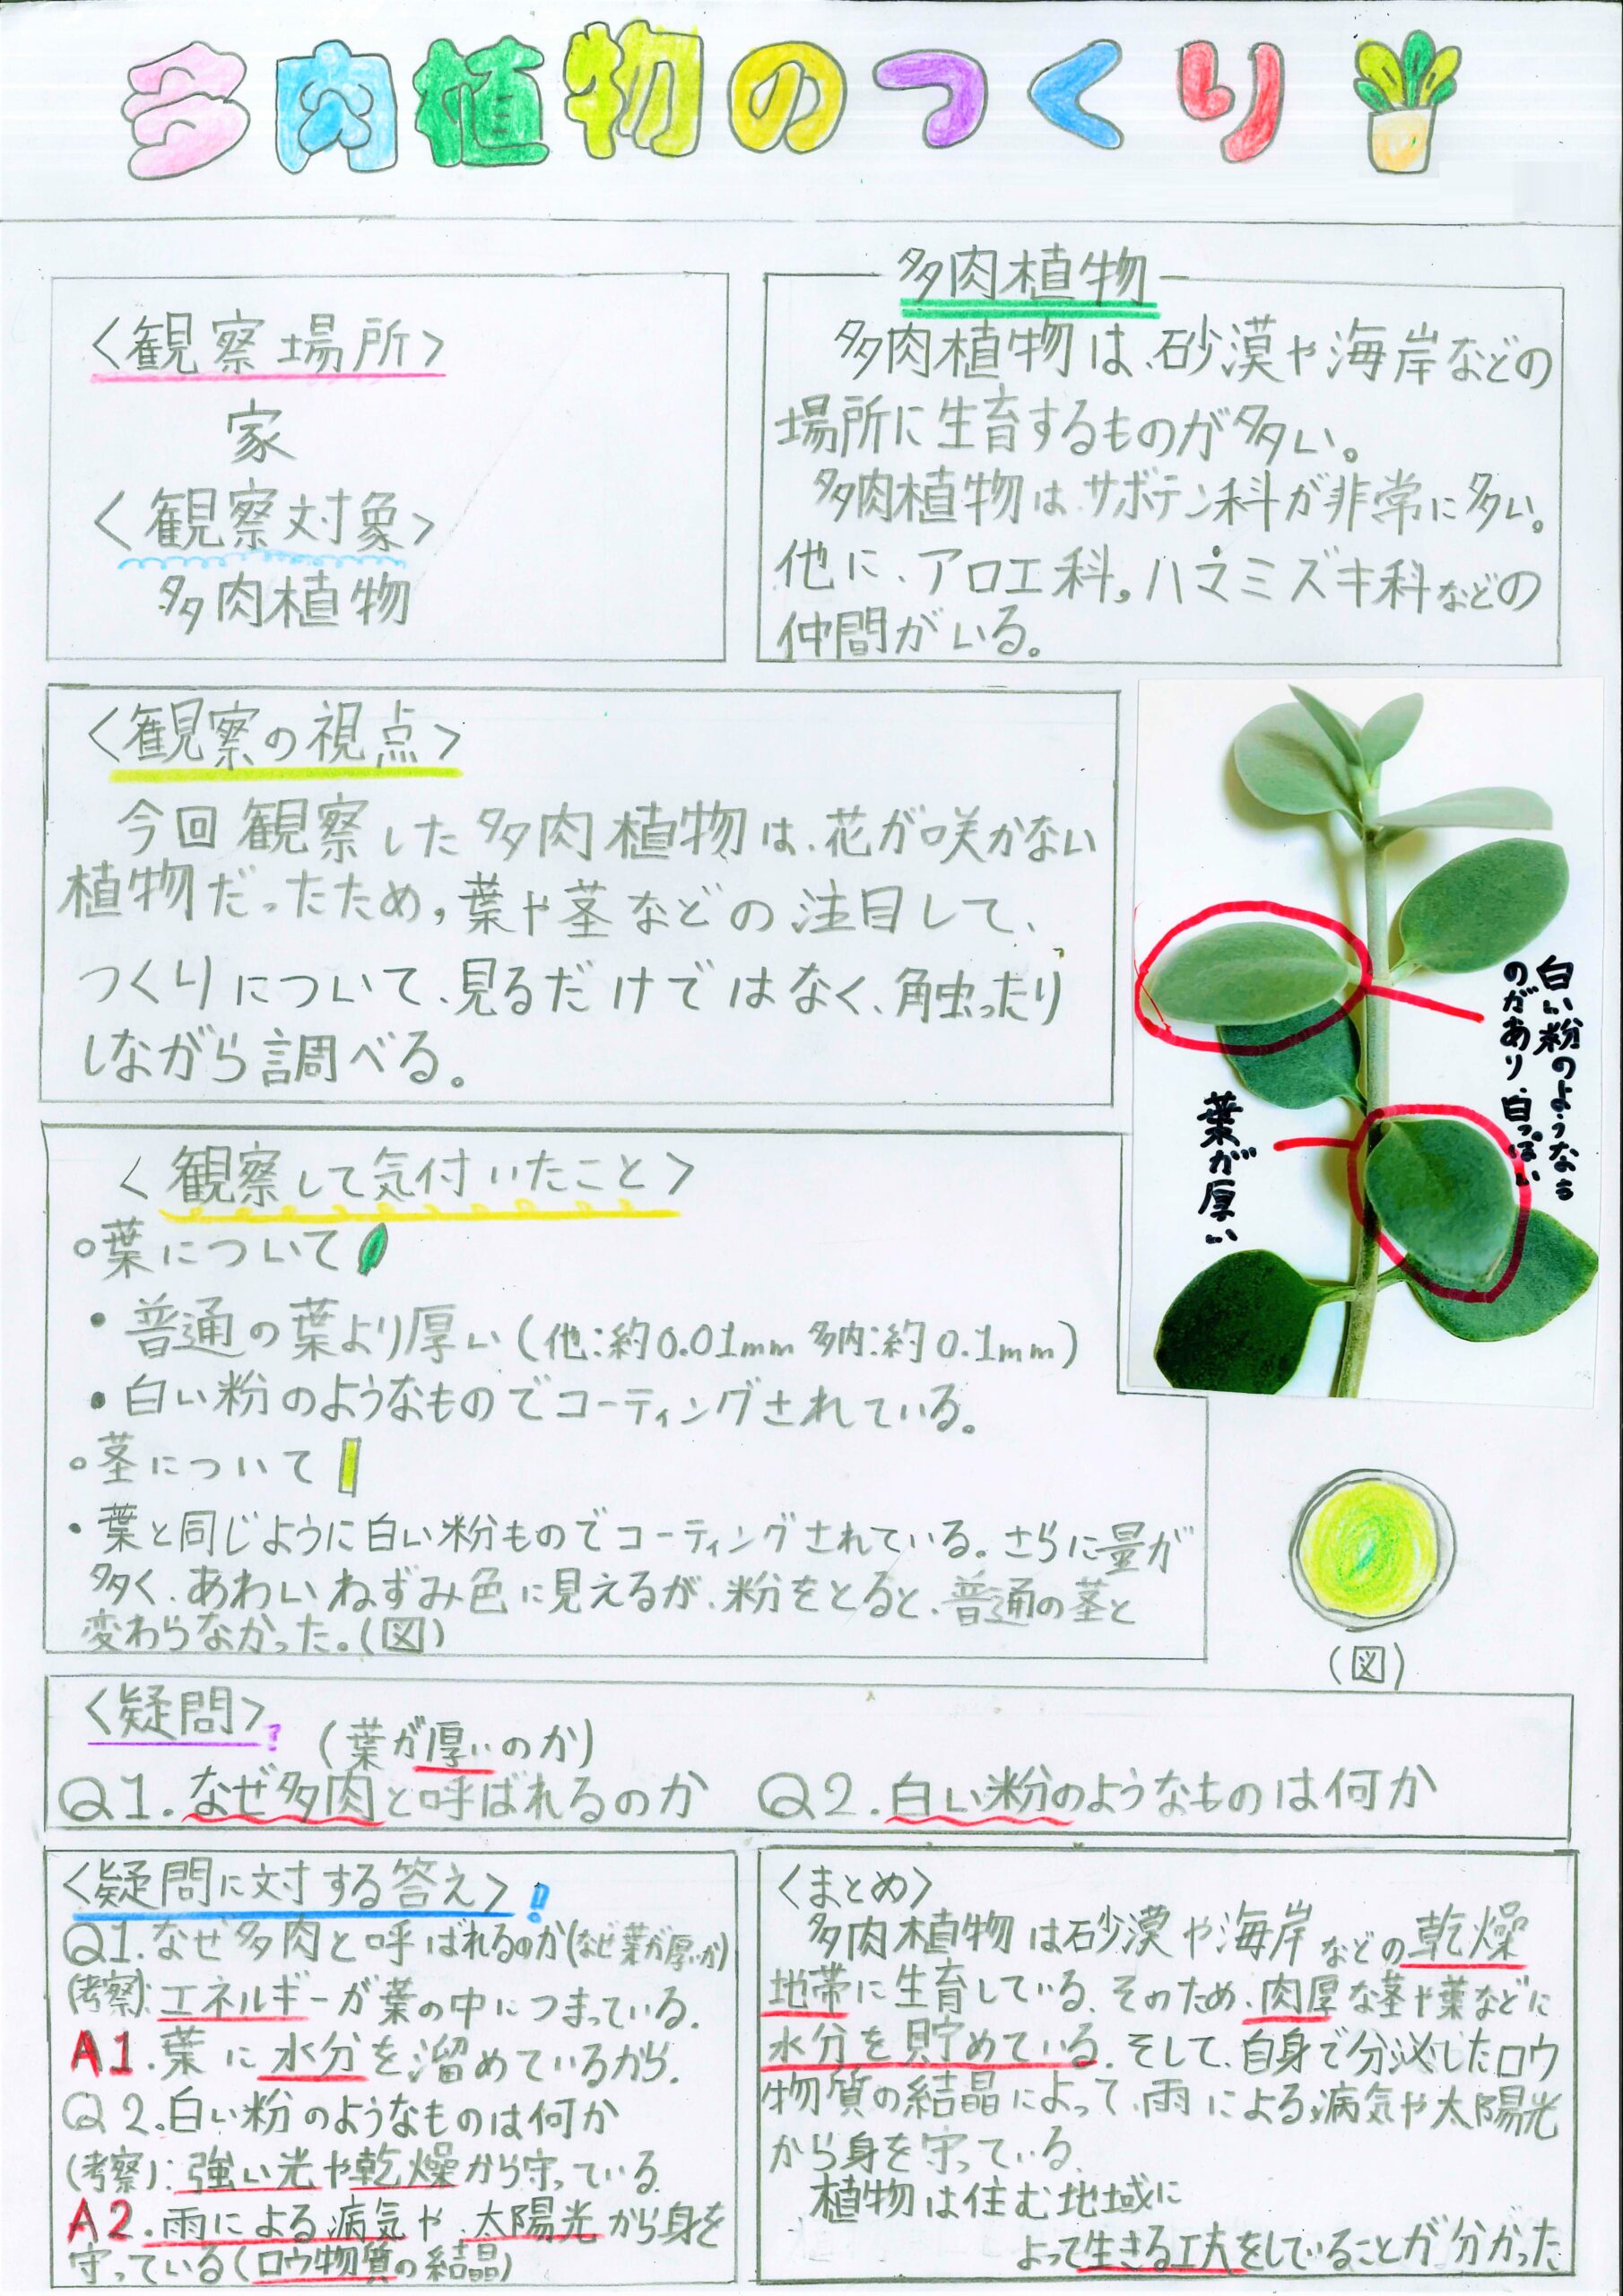 多肉植物のつくり
<観察場所>
家
<観察対象>
多肉植物
多肉植物
多肉植物は、砂漠や海岸などの
場所に生育するものが多い。
多肉植物は、サボテン科が非常に多い。
他に、アロエ科,ハマミズキ科などの
仲間がいる。
<観察の視点>
今回観察した多肉植物は、花が咲かない
植物だったため,葉や茎などの注目して、
つくりについて、見るだけではなく、触ったり
しながら調べる。
白い粉のようなも
のがあり、白っぽい
葉が厚い
<観察して気付いたこと>
○葉について
・普通の葉より厚い(他:約0.01mm 多肉:約0.1mm)
・白い粉のようなものでコーティングされている。
○茎について
・葉と同じように白い粉ものでコーティングされている。さらに量が
多く、あわいねずみ色に見えるが、粉をとると、普通の茎と
変わらなかった。(図)
(図)
<疑問>?
(葉が厚いのか)
Q1.なぜ多肉と呼ばれるのか Q2.白い粉のようなものは何か
<疑問に対する答え>!!
Q1.なぜ多肉と呼ばれるのか(なぜ葉が厚いか)
(考察):エネルギーが葉の中につまっている.
A1.葉に水分を溜めているから.
Q2.白い粉のようなものは何か
(考察):強い光や乾燥から守っている.
A2.雨による病気や、太陽光から身を
守っている(ロウ物質の結晶)
<まとめ>
多肉植物は砂漠や海岸などの乾燥
地帯に生育している、そのため、肉厚な茎や葉などに
水分を貯めている.そして、自身で分泌したロウ
物質の結晶によって、雨による病気や太陽光
から身を守っている.
植物は住む地域に
よって生きる工夫をしていることが分かった